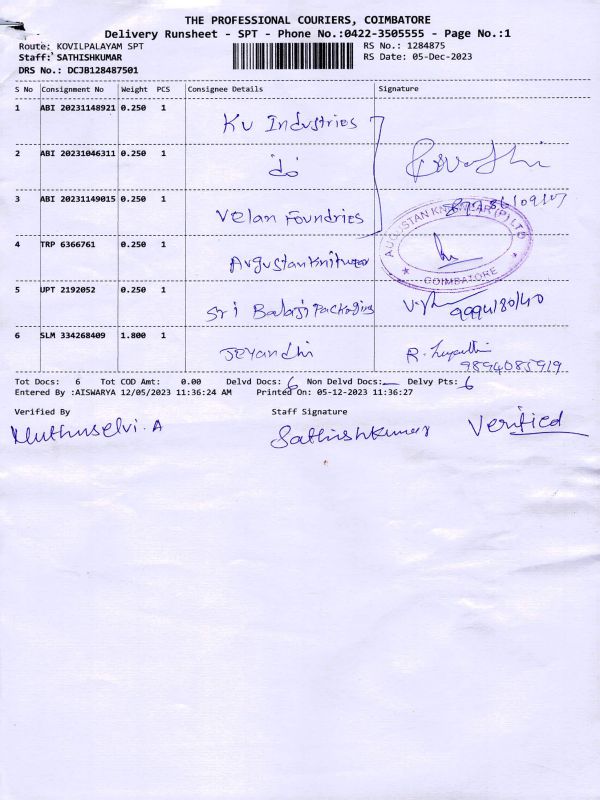 THE PROFESSIONAL COURIERS, COIMBATORE
Delivery Runsheet - SPT - Phone No.:0422-3505555 - Page No.:1
Route: KOVILPALAYAM SPT
RS No.: 1284875
Staff: SATHISHKUMAR
RS Date: 05-Dec-2023
DRS No.: DCJB128487501
S No Consignment No Weight PCS Consignee Details Signature
1 ABI 20231148921 0.250 1 KV Industries
2 ABI 20231046311 0.250 1 do
3 ABI 20231149015 0.250 1 Velan Foundries
AUGUSTAN KNITWEAR (P) LTD
COIMBATORE
4 TRP 6366761 0.250 1 Augustan Knitwear
5 UPT 2192052 0.250 1 Sri Balaji Packaging
6 SLM 334268409 1.800 1 Jeyandhi
9894085919
Tot Docs: 6 Tot COD Amt: 0.00 Delvd Docs: 6 Non Delvd Docs:— Delvy Pts: 6
Entered By :AISWARYA 12/05/2023 11:36:24 AM Printed On: 05-12-2023 11:36:27
Verified By Staff Signature
Muthuselvi. A Sathishkumar Verified